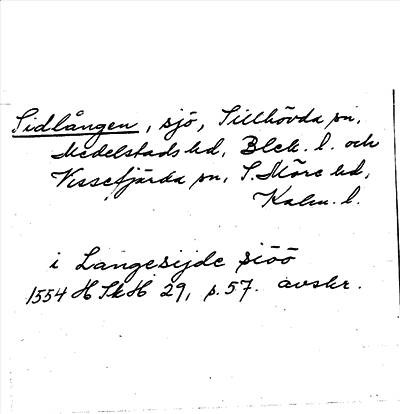 Sidlången, sjö, Tillhövda sn,
Medelstads hd, Blek. l. och
Vissefjärda sn, S. Möre hd,
Kalm. l.
i Langesijde siöö
1554 H Sk H 29, p. 57. avskr.